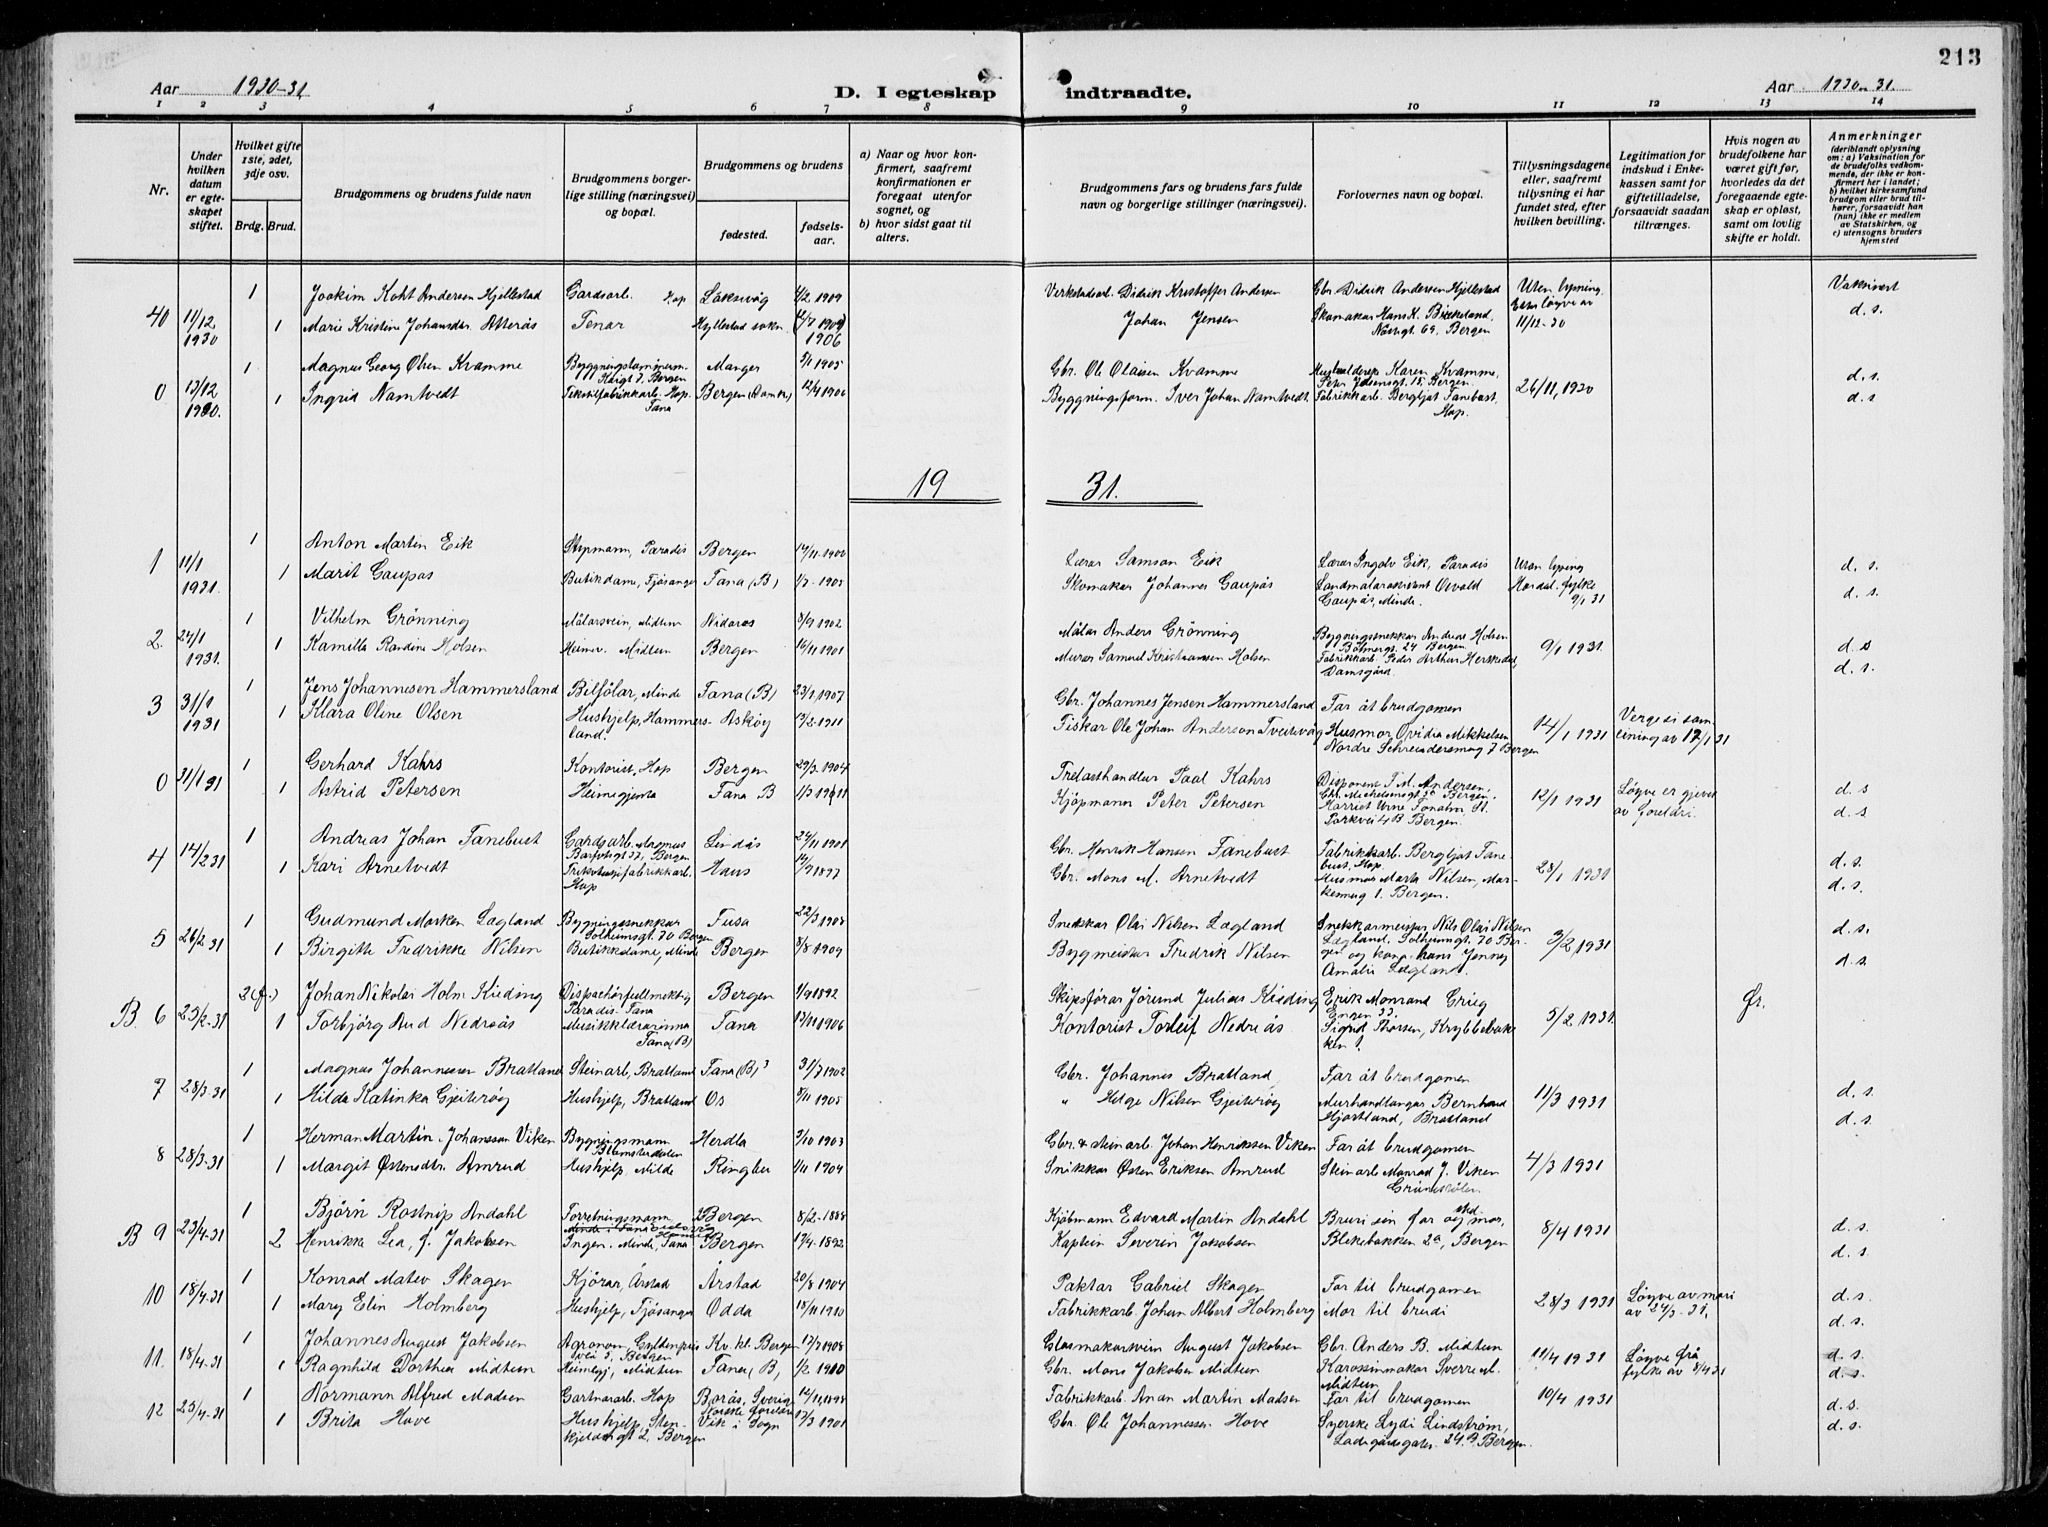 213
Aar 1930-31
D. I egteskap indtraadte.
Aar 1930-31.
1 2 3 4 5 6 7 8 9 10 11 12 13 14
Nr.
Under hvilken datum er egteskapet stiftet.
Hvilket gifte 1ste, 2det, 3dje osv.
Brdg. Brud.
Brudgommens og brudens fulde navn
Brudgommens borgerlige stilling (næringsvei) og bopæl.
Brudgommens og brudens
fødested.
fødselsaar.
a) Naar og hvor konfirmert, saafremt konfirmationen er foregaat utenfor sognet, og
b) hvor sidst gaat til alters.
Brudgommens fars og brudens fars fulde navn og borgerlige stillinger (næringsvei).
Forlovernes navn og bopæl.
Tillysningsdagene eller, saafremt tillysning ei har fundet sted, efter hvilken bevilling.
Legitimation for indskud i Enkekassen samt for giftetilladelse, forsaavidt saadan tiltrænges.
Hvis nogen av brudefolkene har været gift før, hvorledes da det foregaaende egteskap er opløst, samt om lovlig skifte er holdt.
Anmerkninger (deriblandt oplysning om: a) Vaksination for de brudefolks vedkommende, der ikke er konfirmert her i landet; b) hvilket kirkesamfund brudgom eller brud tilhører, forsaavidt han (hun) ikke er medlem av Statskirken, og c) utensogns bruders hjemsted
1 Joakim Koht Andersen Hjellestad Gardsarb. Hop Laksevåg 4/2 1909 Verkstadsarb. Didrik Kristoffer Andersen Gbr. Didrik Andersen Hjellestad Uten lysning. Vaksinert
40 11/12 1930 1 Marie Kristine Johansdtr. Atterås Tenar Hjellestad sokn 1906 Johan Jensen Skomakar Hans K. Birkeland, Nostegt 69, Bergen Etter løyve av 11/12-30 d. s.
1 Magnus Georg Olsen Kvamme Bygningstømmerm. Bergen Manger 5/11 1905 Gbr. Ole Olaisen Kvamme Karen Kvamme, Bergen. d. s.
0 13/12 1930. 1 Ingrid Namtvedt Tekstilfabrikkarb. Hop. Fana Bergen (Domk.) 12/4 1906 Bygningsform. Iver Johan Namtvedt Fabrikkarb. Bergljot Fanebust, Hop. 26/11, 1930 d. s
19 31.
1 Anton Martin Eik Stypmann, Paradis Bergen 14/11-1900 Lærar Samson Eik Lærar Ingolv Eik, Paradis Utan lysing d. s.
1 11/1 1931. 1 Marit Gaupås Butikdame, Fjøsanger Fana (B) 1/7-1905 Skomakar Johannes Gaupås Landmålarassistent Osvald Gaupås, Minde. Hordal. fylke 9/1 31 d. s.
1 Vilhelm Grönning Målarsvein, Midtun Nidaros 8/9 1902 Målar Anders Grönning Bygningssnekkar Andreas Holsen 24 Bergen d. s
2. 24/1 1931. 1 Kamilla Randine Holsen Heimev. Midtun Bergen 14/11 1901 Murar Samuel Kristiansen Holsen Fabrikkarb. Peder Arthur Herskedal, Damsgård. 9/1 1931. d. s.
1 Jens Johannesen Hammersland Bilfølar, Minde Fana (B) 23/1, 1907 Gbr. Johannes Jensen Hammersland Far åt brudgomen
3 31/1 1931 1 Klara Oline Olsen Hushjelp, Hammersland. Askøy 13/2-1911 Fiskar Ole Johan Anderson Tveitevåg Husmor Ovidia Mikkelsen Nordre Skreuddersmug 7 Bergen 14/1 1931 Verge si samtining av 12/1 31
1 Gerhard Kahrs Kontorist, Hop Bergen 29/3 1904 Trelasthandlar Paal Kahrs Disponent T. M. Andersen, Chr. Michelsensgt Bergen. d. s
0 31/1 31 1 Astrid Petersen Heimegjenta Fana B 1/3 1911 Kjøpmann Peter Petersen Harriet Urne Parkvei 4 B Bergen. 12/1 1931 Løyve er gjeve av foreldri. d. s
1 Andreas Johan Fanebust Gardsarb. Bergen Lindås 24/11 1901 Gbr. Henrik Hansen Fanebust Fabrikkarb. Bergljot Fanebust, Hop. d. s.
4 14/2 31 1 Kari Arnetvedt Trikotasjefabrikkarb. Hop Haus 14/9 1877 Gbr. Mons M. Arnetvedt Husmor Marta Nilsen, Markesmug 1. Bergen. 28/1 1931 d. s.
1 Gudmund Marken Lægland Bygningssnekkar Solheimsgt. 70 Bergen Fusa 22/3 1908 Snekkar Olai Nilsen Lægland Snekkarmeister Nils Olai Nilsen Lægland, Solheimsgt. 70 Bergen og kona hans Jenny Amalie Lægland. d. s.
5 26/2 31 1 Birgitte Fredrikke Nilsen Butikkdame, Minde Bergen 8/8 1909 Bygmeister Fredrik Nilsen 3/2, 1931 d. s.
2 (f.) Johan Nikolai Holm Kieding Dispachørfullmektig Paradis Fana Bergen 1/9 1892 Skipsførar Jörund Julius Kieding Erik Monrand Grieg Engen 33. Ør.
B. 6 25/2-31 1 Torbjörg Aud Nedreås Musikklærarinna Fana (B) Fana 13/11 1906 Kontorist Torleif Nedreås Sigrid Børsen, Krybbebakken 1. 5/2 1931
1 Magnus Johannessen Bratland Steinarb, Bratland Fana (B) 31/7 1902 Gbr. Johannes Bratland Far åt brudgomen d. s.
7 28/3-31 1 Hilda Katinka Gjeitevåg Hushjelp, Bratland Os 3/11 1905 " Helge Nilsen Gjeitevåg Murhandlangar Bernhard Hjortland, Bratland 11/3 1931 d. s.
1 Herman Martin Johansson Viken Bygningsmann Blomsterdalen Herdla 3/10 1903 Gbr. & steinarb. Johan Henriksen Viken Far åt brudgomen
8 28/3-31 1 Margit Østensdtr. Amrud Hushjelp, Milde Ringbu 1/11 1904 Snikkar Østen Eriksen Amrud Steinarb Monrad J. Viken 4/3 1931
1 Björn Rostrup Andahl Forretningsmann Bergen 8/2-1888 Kjøbmann Edvard Martin Andahl Bruri sin far og mor, d. s.
B 9 23/4-31 2 Henrikke Lea, f. Jakobsen Ingen. Minde, Fana Bergen 17/4-1892 Kaptein Severin Jakobsen Blekebakken 2a, Bergen 8/4 1931 d. s.
1 Konrad Mateo Skagen Kjörar, Årstad Årstad 20/8 1904 Paktar Gabriel Skagen Far til brudgomen d. s.
10 18/4-31 1 Mary Elin Holmberg Hushjelp, Fjøsanger Odda 18/11 1910 Fabrikkarb. Johan Albert Holmberg Mor til brudi 28/3 1931 Løyve av mori av 24/3-31. d. s.
1 Johannes August Jakobsen Agronom, Gyldenpris vei 5, Bergen Kv. kl. Bergen 17/7 1908 Glasmakarsvein August Jakobsen Gbr. Anders B. Midtun d. s.
11. 18/4-31 1 Ragnhild Dorthea Midtun Heimegj, Midtun Fana (B) 1/2 1910 Gbr. Mons Jakobsen Midtun Karosserimakar Sverre M. Midtun 11/4 1931 Løyve frå fylke av 8/4 31 d. s.
1 Normann Alfred Madsen Gartnararb. Hop Borås, Sverige Norske foreldre 12/11, 1898 Fabrikkarb. Anan Martin Madsen Far til brudgomen 10/4 1931 d. s.
12 25/4-31 1 Brita Hove Hushjelp, Stenkjeldergt 2, Bergen Vik i Sogn 17/3 1901 Gbr. Ole Johannessen Hove Syerske Lydi Lindström, Ladegårdsgaten 24 B, Bergen. d. s.